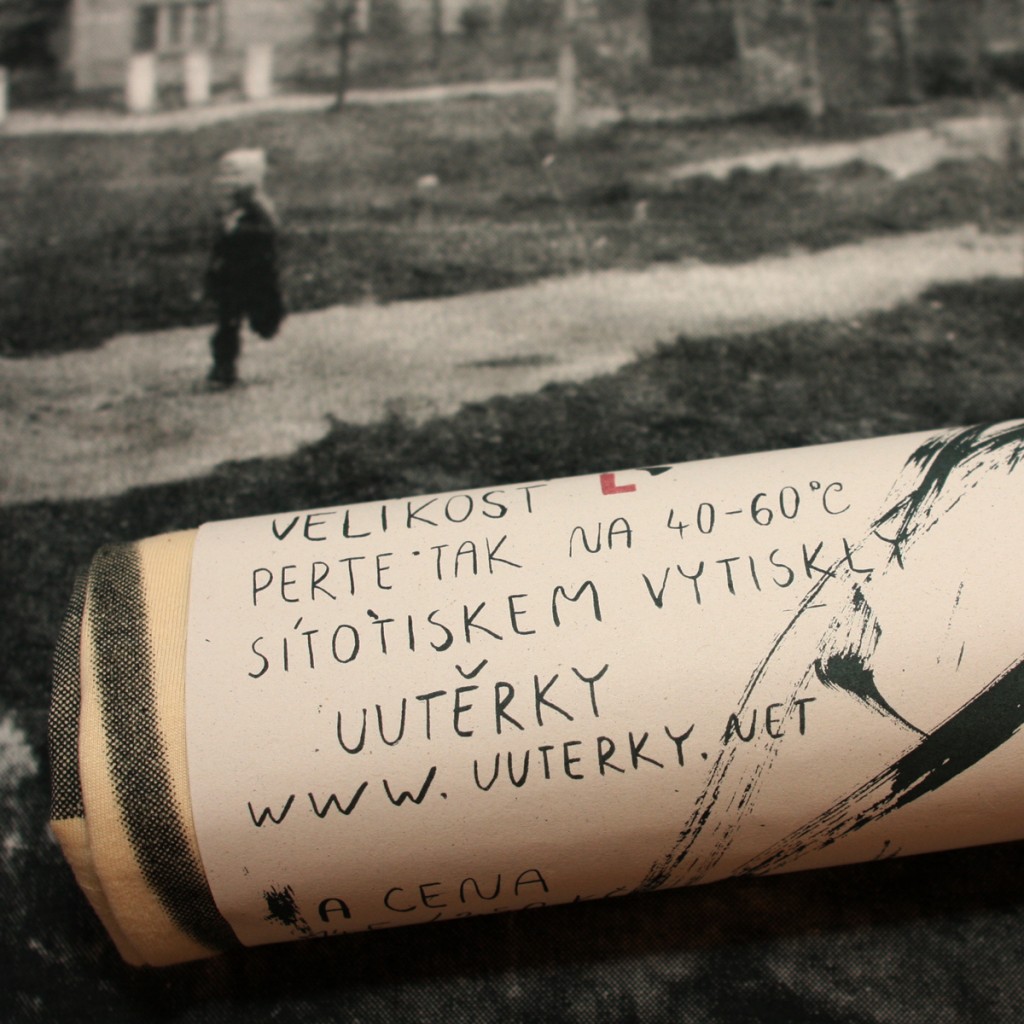 VELIKOST L
PERTE TAK NA 40-60°C
SÍTOTISKEM VYTISKLY
UUTĚRKY
WWW.UUTERKY.NET
A CENA